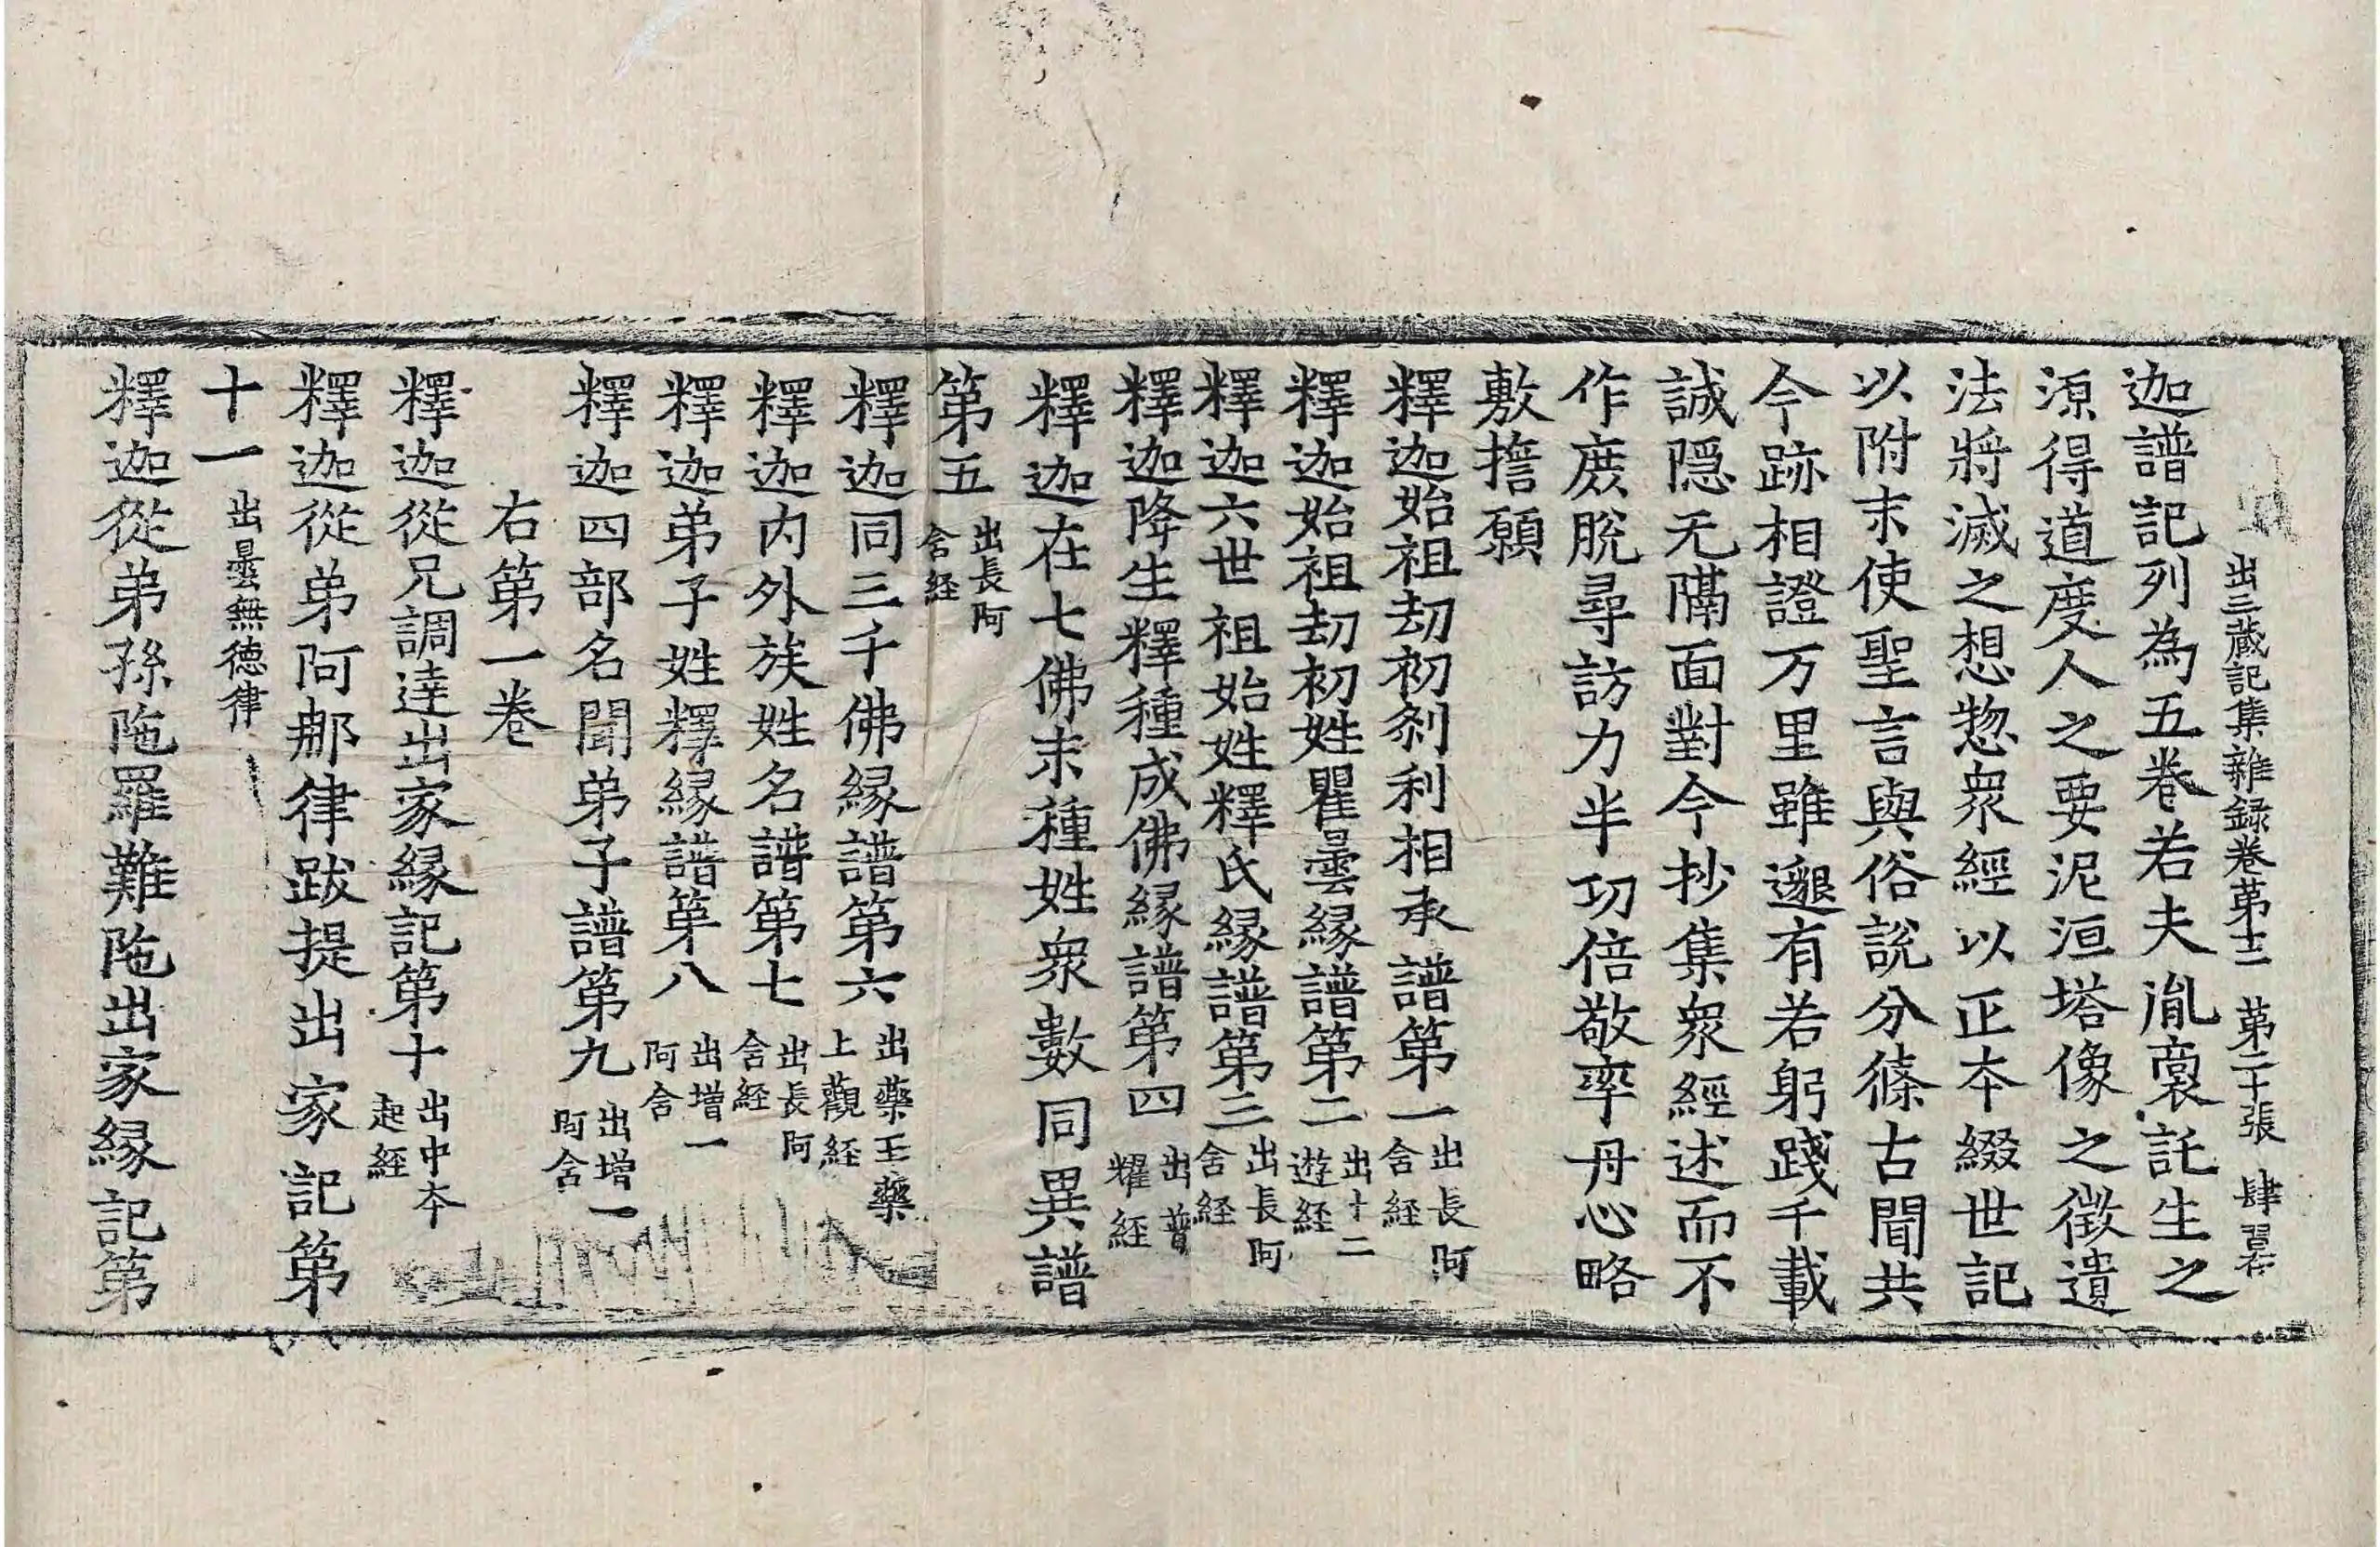 出三蔵記集雜録卷苐十二 苐二十張 肆
迦譜記列為五卷若夫胤裔託生之
源得道度人之要泥洹塔像之徵遺
法將滅之想惣衆經以正本綴世記
以附末使聖言與俗說分條古聞共
今跡相證万里雖邈有若躬踐千載
誠隠无隔面對今抄集衆經述而不
作庻脫尋訪力半功倍敬率丹心略
敷誓願
釋迦始祖劫初刹利相承譜第一 出長阿含経
釋迦始祖劫初姓瞿曇緣譜第二 出十二遊経
釋迦六世祖始姓釋氏緣譜第三 出長阿含経
釋迦降生釋種成佛緣譜第四 出普耀経
釋迦在七佛末種姓衆數同異譜
第五 出長阿含経
釋迦同三千佛緣譜第六 出藥王藥上觀経
釋迦内外族姓名譜第七 出長阿含経
釋迦弟子姓釋緣譜第八 出增一阿含
釋迦四部名聞弟子譜第九 出增一阿含
右第一卷
釋迦從兄調達出家緣記第十 出中本起経
釋迦從弟阿那律跋提出家記第
十一 出曇無德律
釋迦從弟孫陁羅難陁出家緣記第